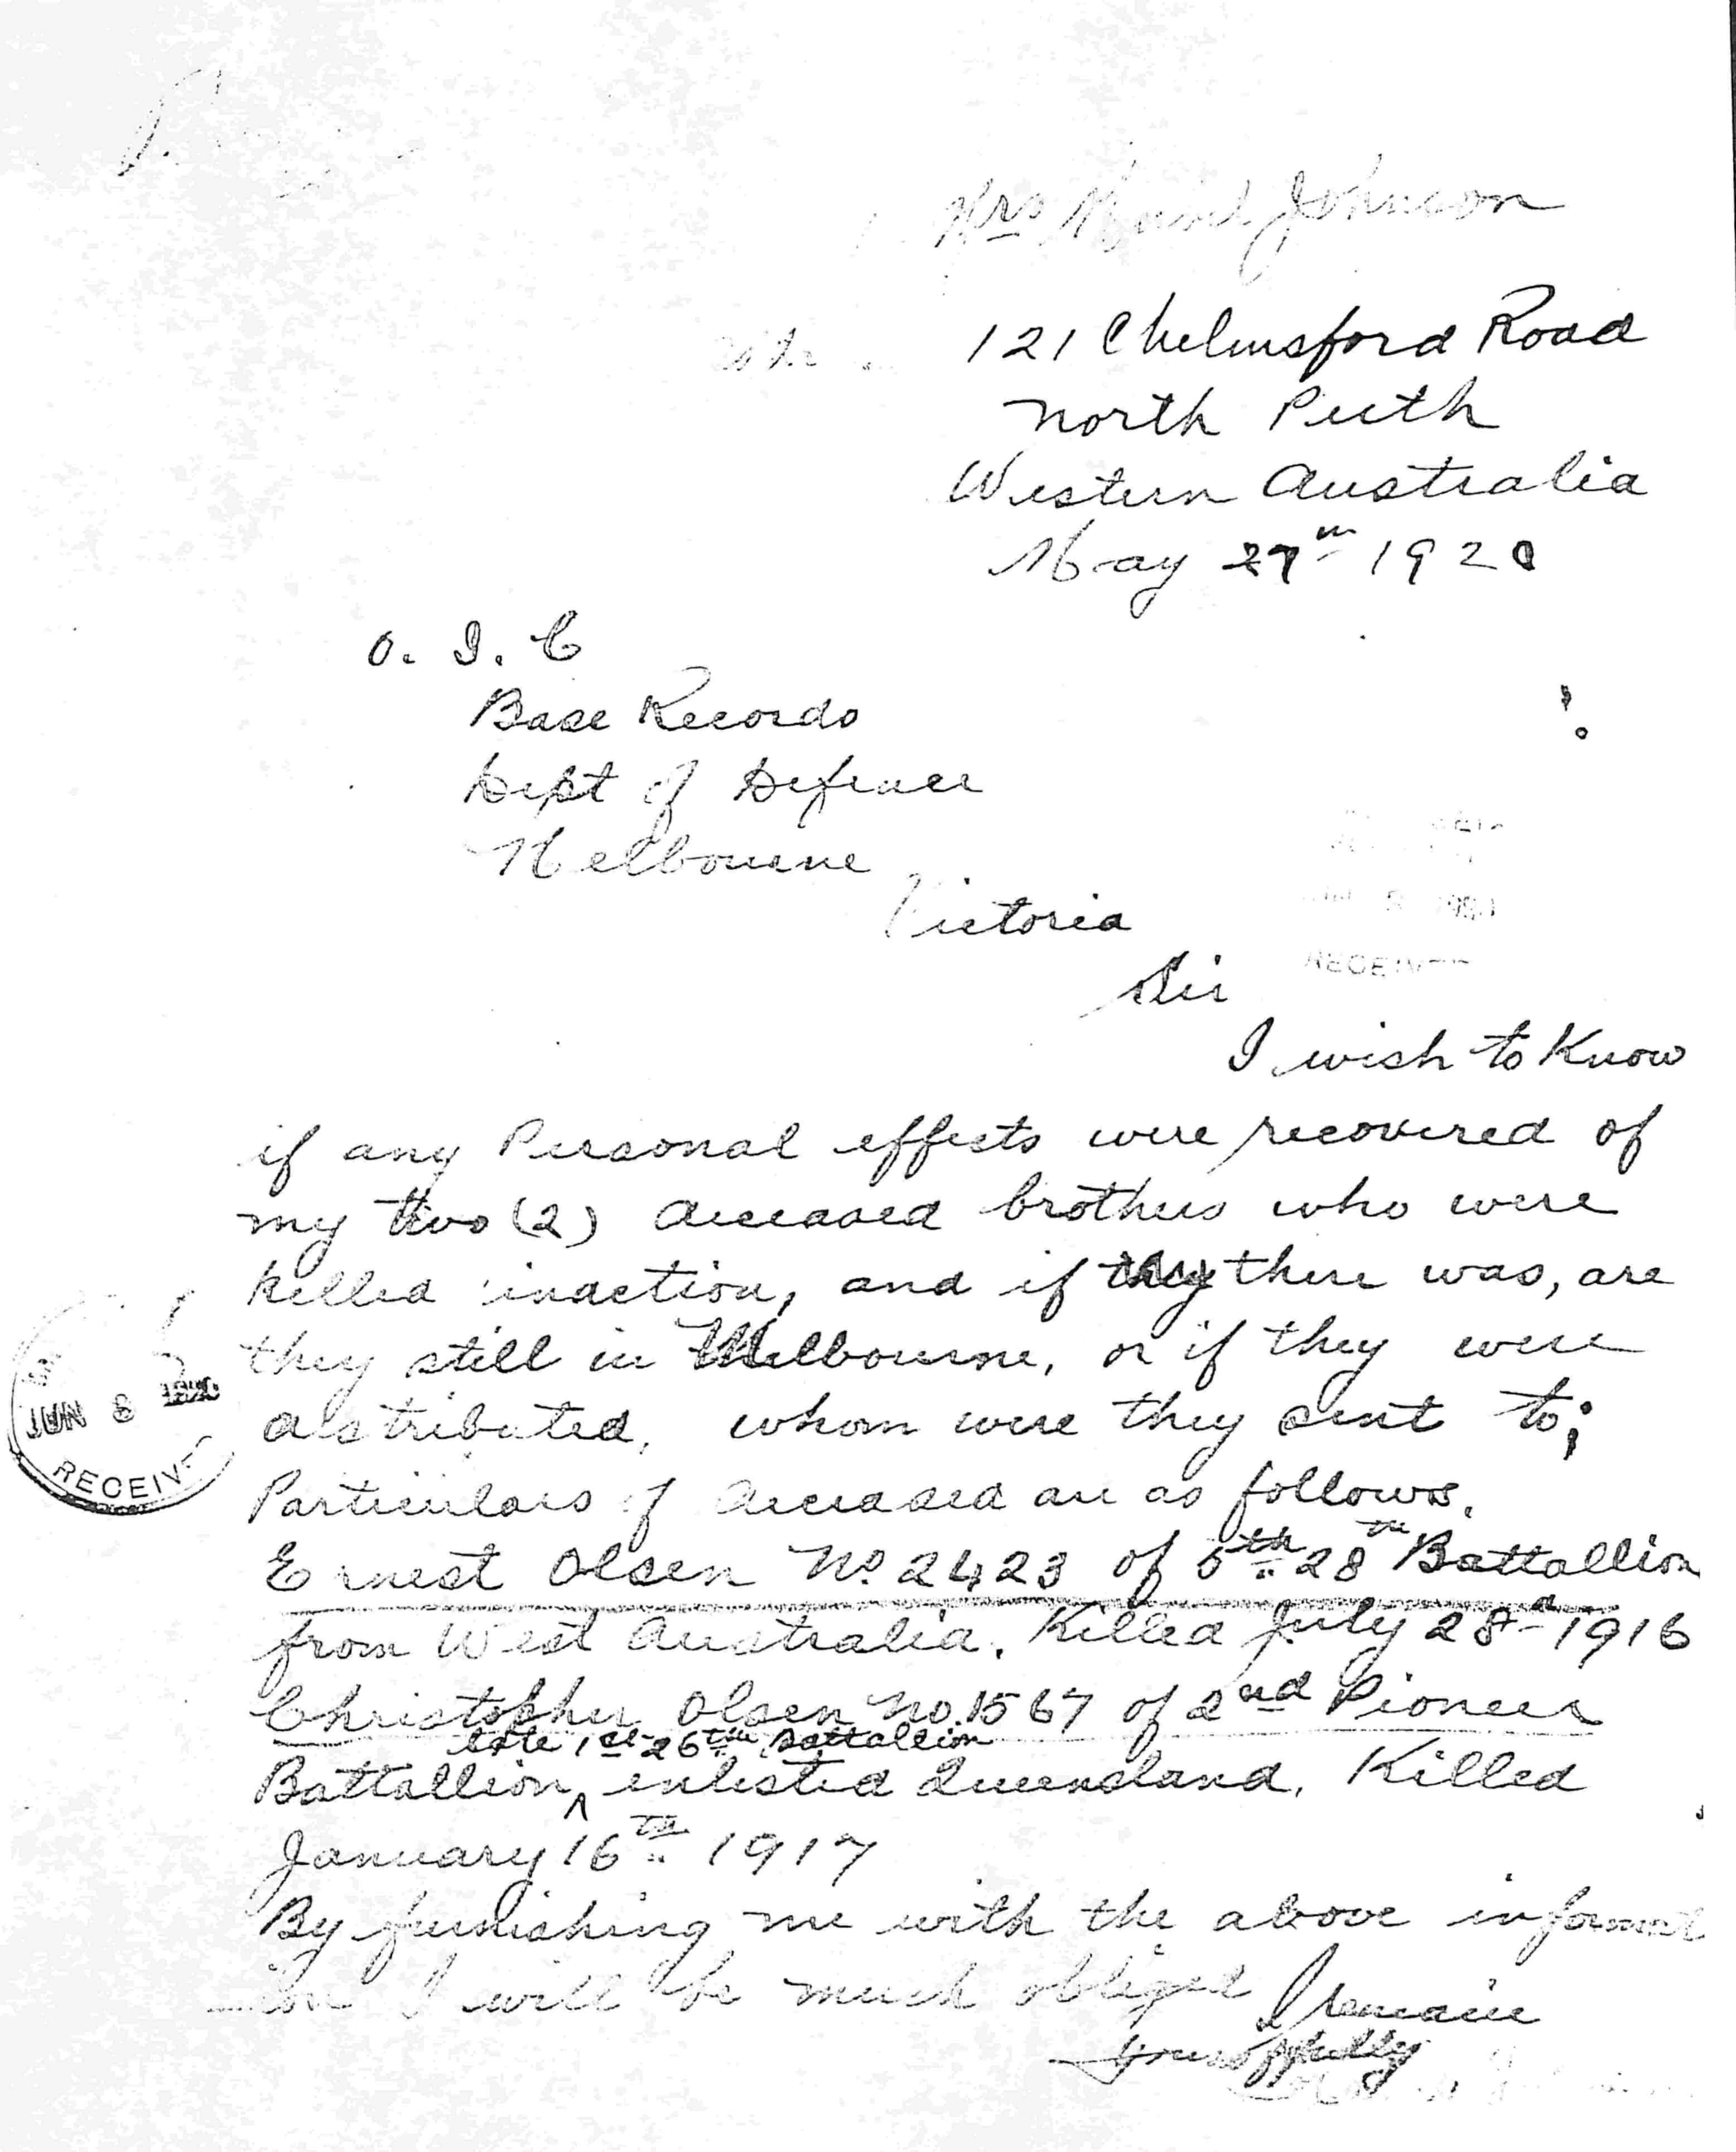 Mrs Johnson
121 Chelmsford Road
North Perth
Western Australia
May 27th 1920
O. I. C
Base Records
Dept of Defence
Melbourne
Victoria
RECEIVE
Sir
I wish to Know
if any Personal effects were recovered of
my two (2) deceased brothers who were
killed inaction, and if there was, are
they still in Melbourne, or if they were
distributed, whom were they sent to;
JUN 8 1920
RECEIVE
Particulars of deceased are as follows.
Ernest Olsen No. 2423 of 5th 28th Battallion
from West Australia. Killed July 28th 1916
Christopher Olsen No. 1567 of 2nd Pioneer
late 1st 26th Battallion
Battallion, ^ enlisted Queensland. Killed
January 16th 1917
By furnishing me with the above informat
ion I will be much obliged I remain
yours